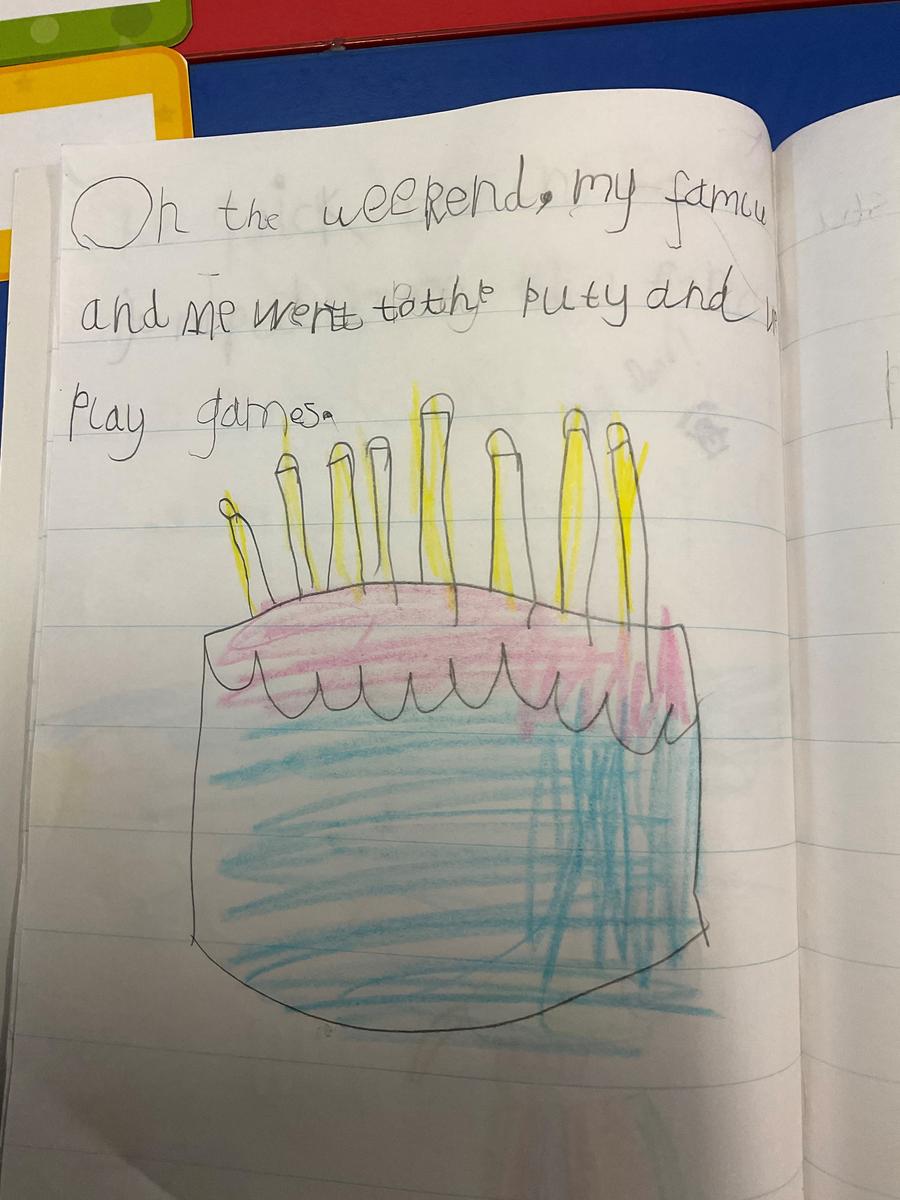 On the weekend, my famu
and me went to the puty and we
play games.